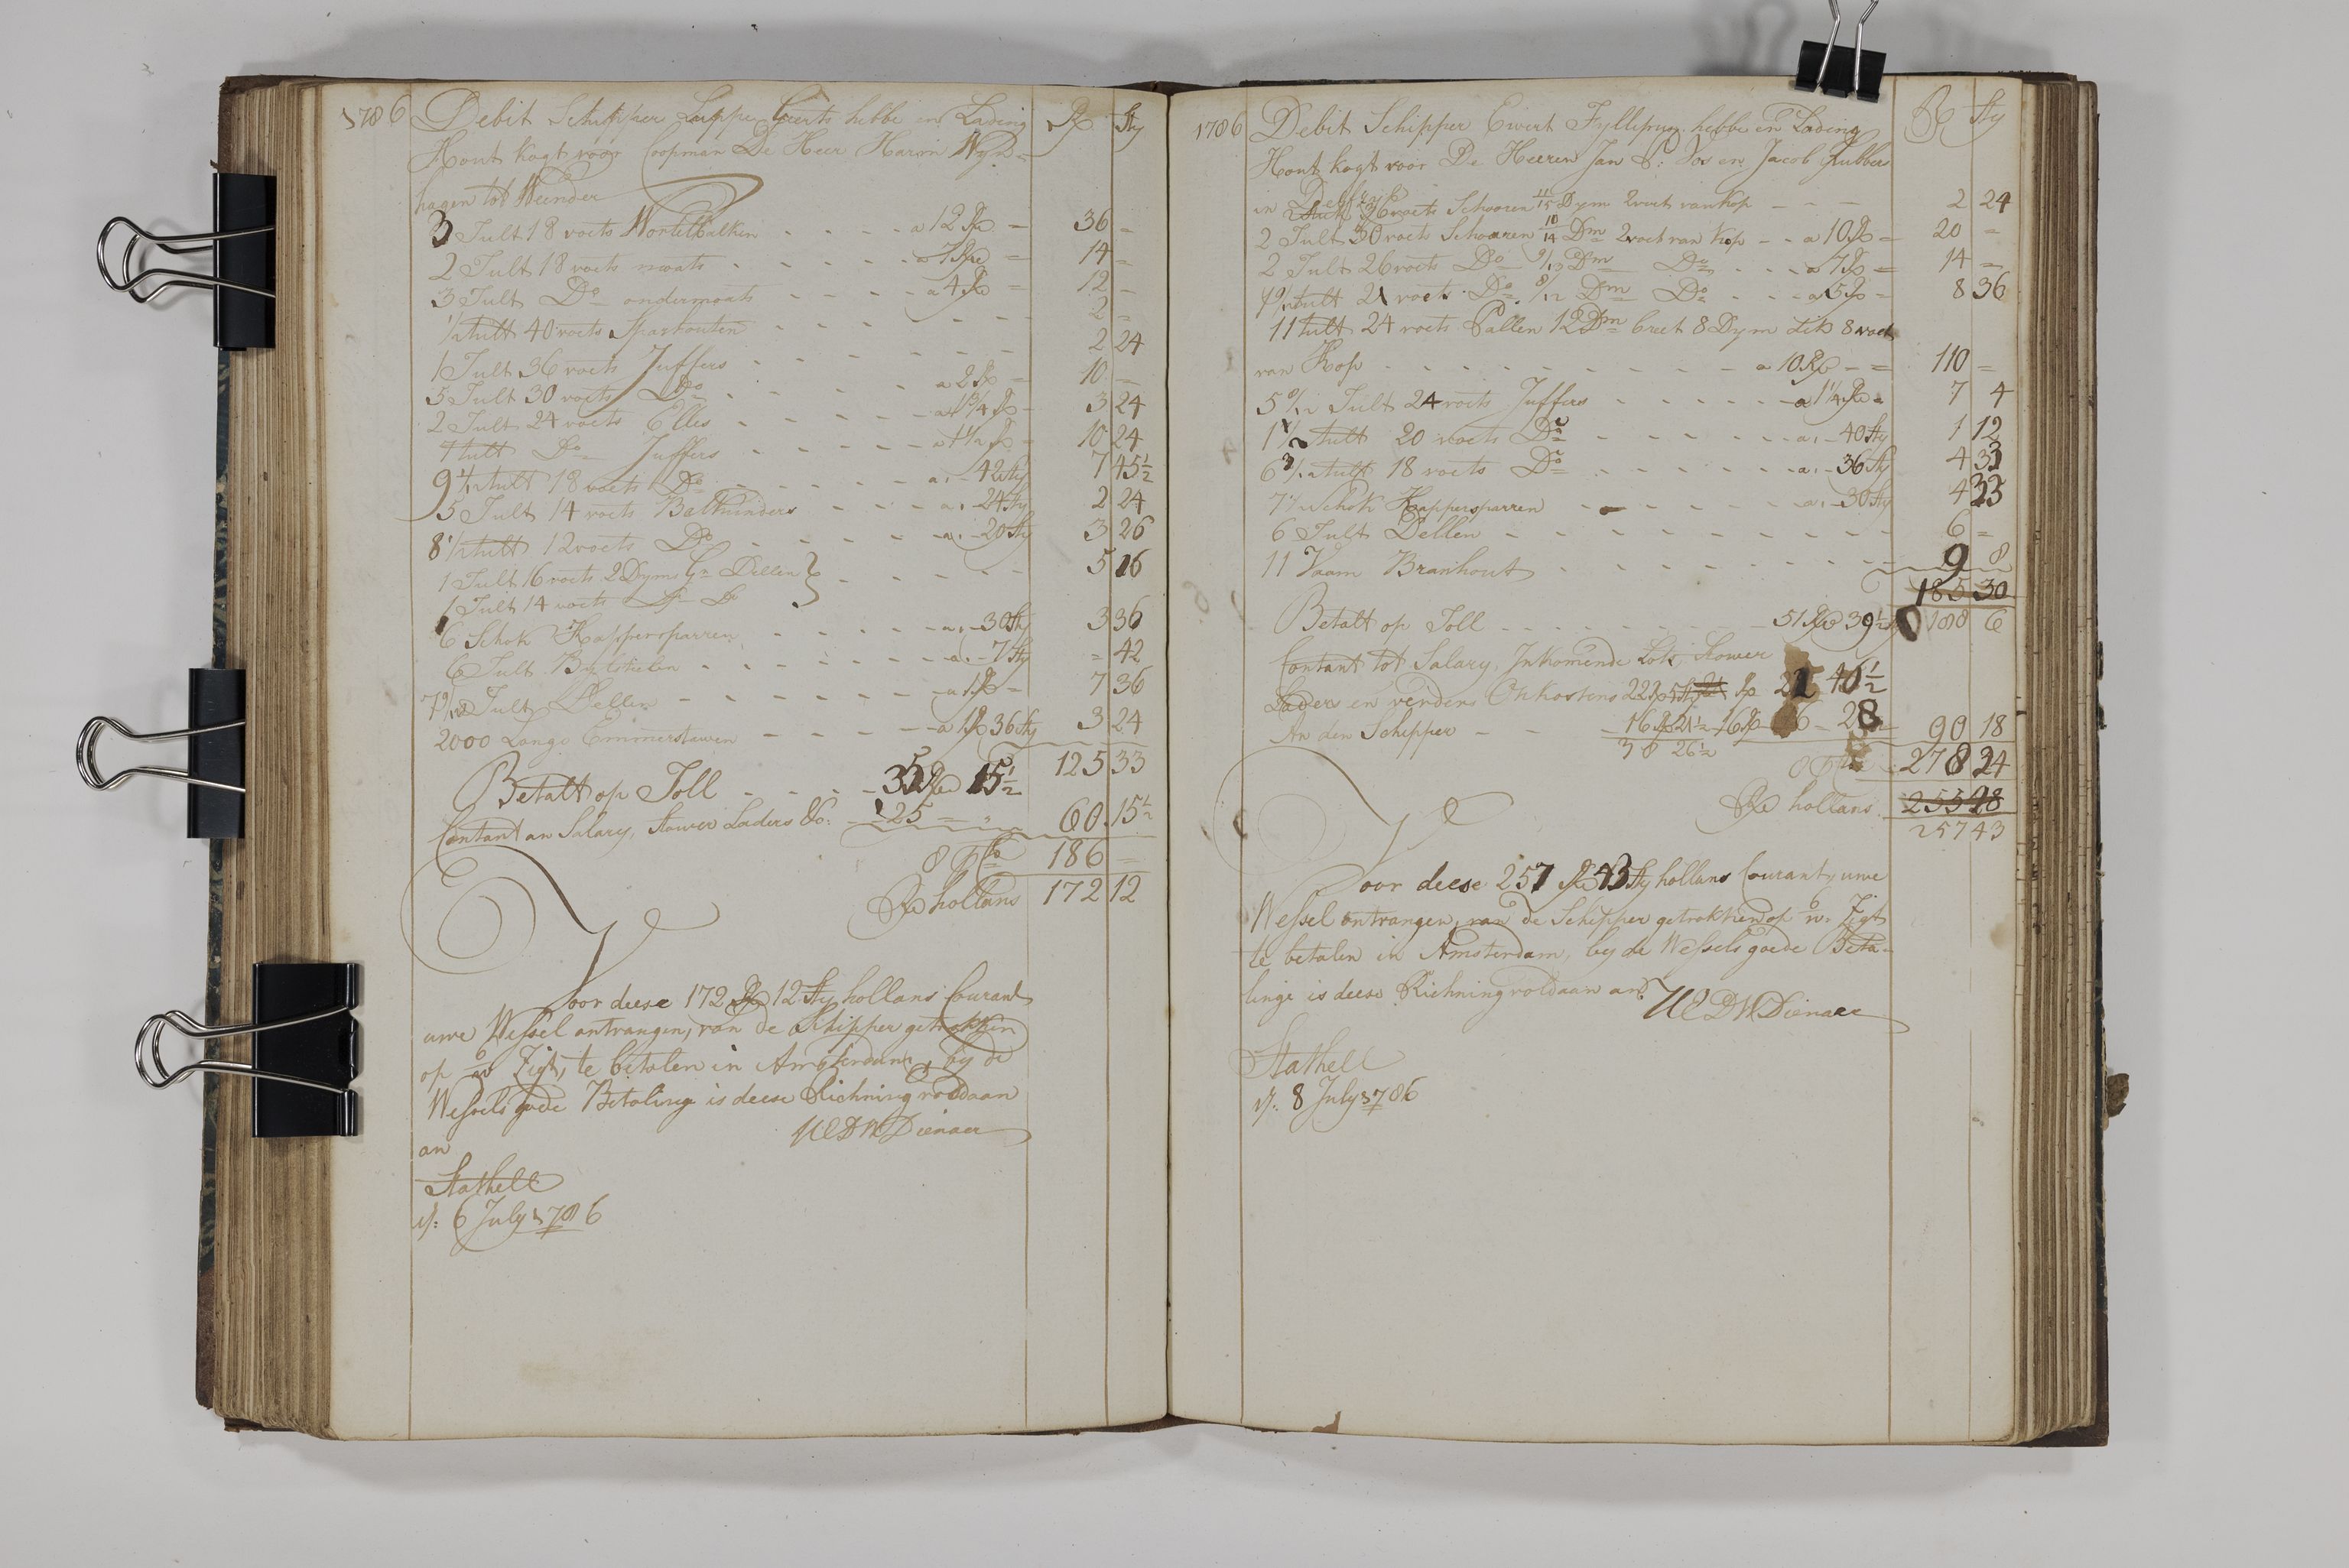 1786 Debit Schipper Luppe Geerts hebbe en Lading Rd Sty
Hout kogt voor Coopman De Heer Harm Wyn=
hagen tot Weender
3 Tult 18 voets Wortelbalken - - - - a 12 Rd = 36 =
2 Tult 18 voets - - - - a 7 Rd = 14 =
3 Tult Do - - - - a 4 Rd = 12 =
1/2 tult 40 voets Sparhouten - - - - 2 =
1 Tult 36 voets Juffers - - - - 2 24
5 Tult 30 voets Do - - - - a 2 Rd = 10 =
2 Tult 24 voets Elles - - - - a 1 3/4 Rd - 3 24
7 tult Do Juffers - - - - a 1 1/2 Rd - 10 24
9 1/12 tult 18 voets Do - - - - a, - 42 Sty 7 45 1/2
5 Tult 14 voets - - - - a, - 24 Sty 2 24
8 1/2 tult 12 voets Do - - - - a, - 20 Sty 3 26
1 Tult 16 voets 2 Dyms Dellen } - - - - 5 16
1 Tult 14 voets Do Do
6 Schok Happersparren - - - - a, - 30 Sty 3 36
6 Tult - - - - a, - 7 Sty = 42
7 Tult Dellen - - - - a 1 Rd - 7 36
2000 Lange Emmerstawen - - - - a 1 Rd 36 Sty 3 24
125 33
Betalt op Toll - - - - 35 Rd 15 1/2
Contant an Salary, Stower Laders &c: - 25 = " 60 15 1/2
8 PCto 186 =
Rd hollans 172 12
Voor deese 172 Rd 12 Sty hollans Courant
uwe Wessel ontvangen, van de Schipper getrokken
op Zigt, te betalen in Amsterdam, by de
Wessels goede Betaling is deese Richning voldaan
an UEDWDienaer
Stathell
d: 6 July 1786
1786 Debit Schipper Ewert Fyllips hebbe en Lading Rd Sty
Hout kogt voor De Heeren Jan P: Vos en Jacob Lubbers
in Delffzyl
26 voets Schooren 11/15 Dym 2 voet van Kop - - - 2 24
2 Tult 30 voets Schooren 10/14 Dm 2 voet van Kop - - a 10 Rd = 20 =
2 Tult 26 voets Do 9/13 Dm Do - - - a 7 Rd = 14 =
tult 21 voets Do 8/12 Dm Do - - - a 5 Rd = 8 36
11 tult 24 voets Pallen 12 Dm breet 8 Dym dik 8 voet
van Kop - - - - a 10 Rd - = 110 =
5 Tult 24 voets Juffers - - - - a 1 1/4 Rd = 7 4
tult 20 voets Do - - - - a, - 40 Sty 1 12
6 3/12 tult 18 voets Do - - - - a, - 36 Sty 4 33
Schok Happersparren - - - - a, - 30 Sty 4 33
6 Tult Dellen - - - - 6 =
11 Vaam Branhout - - - - 9 8
185 30
Betalt op Toll - - - - 51 Rd 39 1/2 188 6
Contant tot Salary, Inkomende Lots, Stower
Laders en verdens Onkostens 22 Rd 5 Sty Rd 21 40 1/2
An den Schipper - - - 16 Rd 21 1/2 16 Rd 28 90 18
38 26 1/2
8 PCto 278 24
Rd hollans 255 28
257 43
Voor deese 257 Rd 43 Sty hollans Courant, uwe
Wessel ontvangen, van de Schipper getrokken op Zigt
te betalen in Amsterdam, by de Wessels goede Beta=
linge is deese Richning voldaan an UEDWDienaer
Stathell
d: 8 July 1786